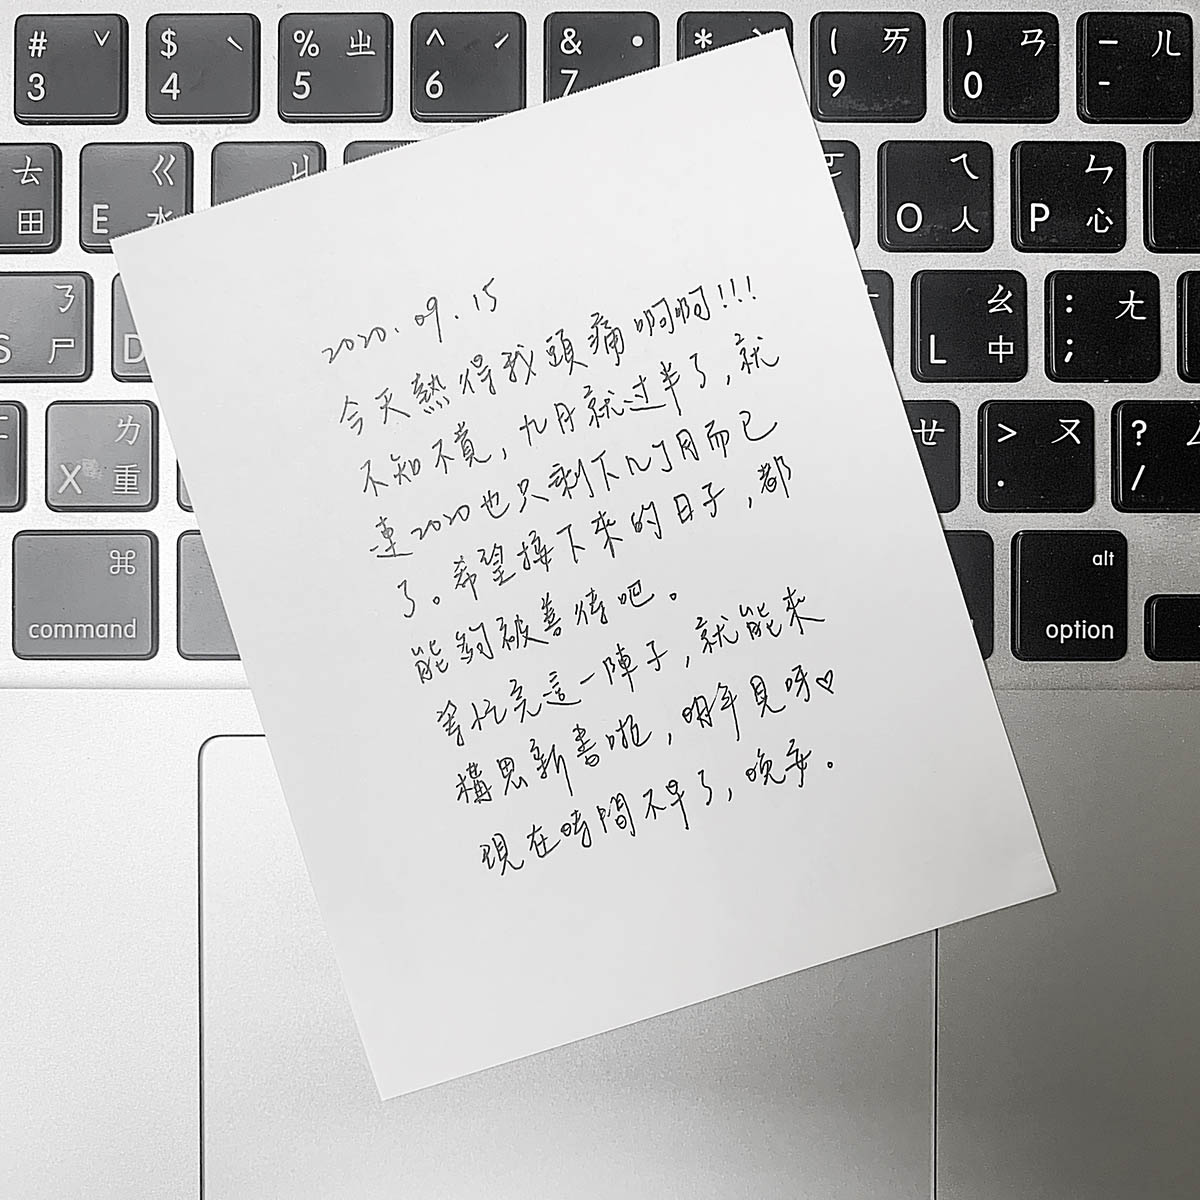 # ˇ 3
$ ˋ 4
% ㄓ 5
^ ˊ 6
& ˙ 7
*
( ㄞ 9
) ㄢ 0
— ㄦ -
ㄊ 田
ㄍ E 水
ㄐ
ㄟ O 人
ㄣ P 心
ㄋ S 尸
D
ㄠ L 中
: ㄤ ;
ㄌ X 重
ㄝ
> ㄡ .
? ㄥ /
⌘ command
alt option
2020.09.15
今天熱得我頭痛啊啊!!!
不知不覺，九月就过半了，就
連2020也只剩下几个月而已
了。希望接下來的日子，都
能夠被善待吧。
等忙完這一陣子，就能來
構思新書啦，明年見呀♡
現在時間不早了，晚安。